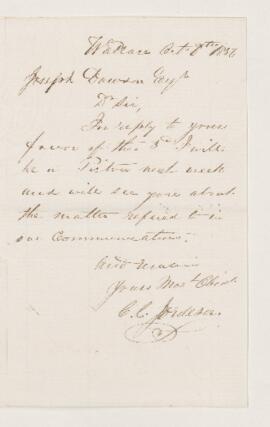 Wallace Oct 7th 1856
Joseph Dawson Esqr
Dr Sir,
In reply to your
favor of the 3d I will
be in Pictou next week
and will see you about
the matter refered to in
our Communication.
And remain
Yours Most Obedt
C. C.